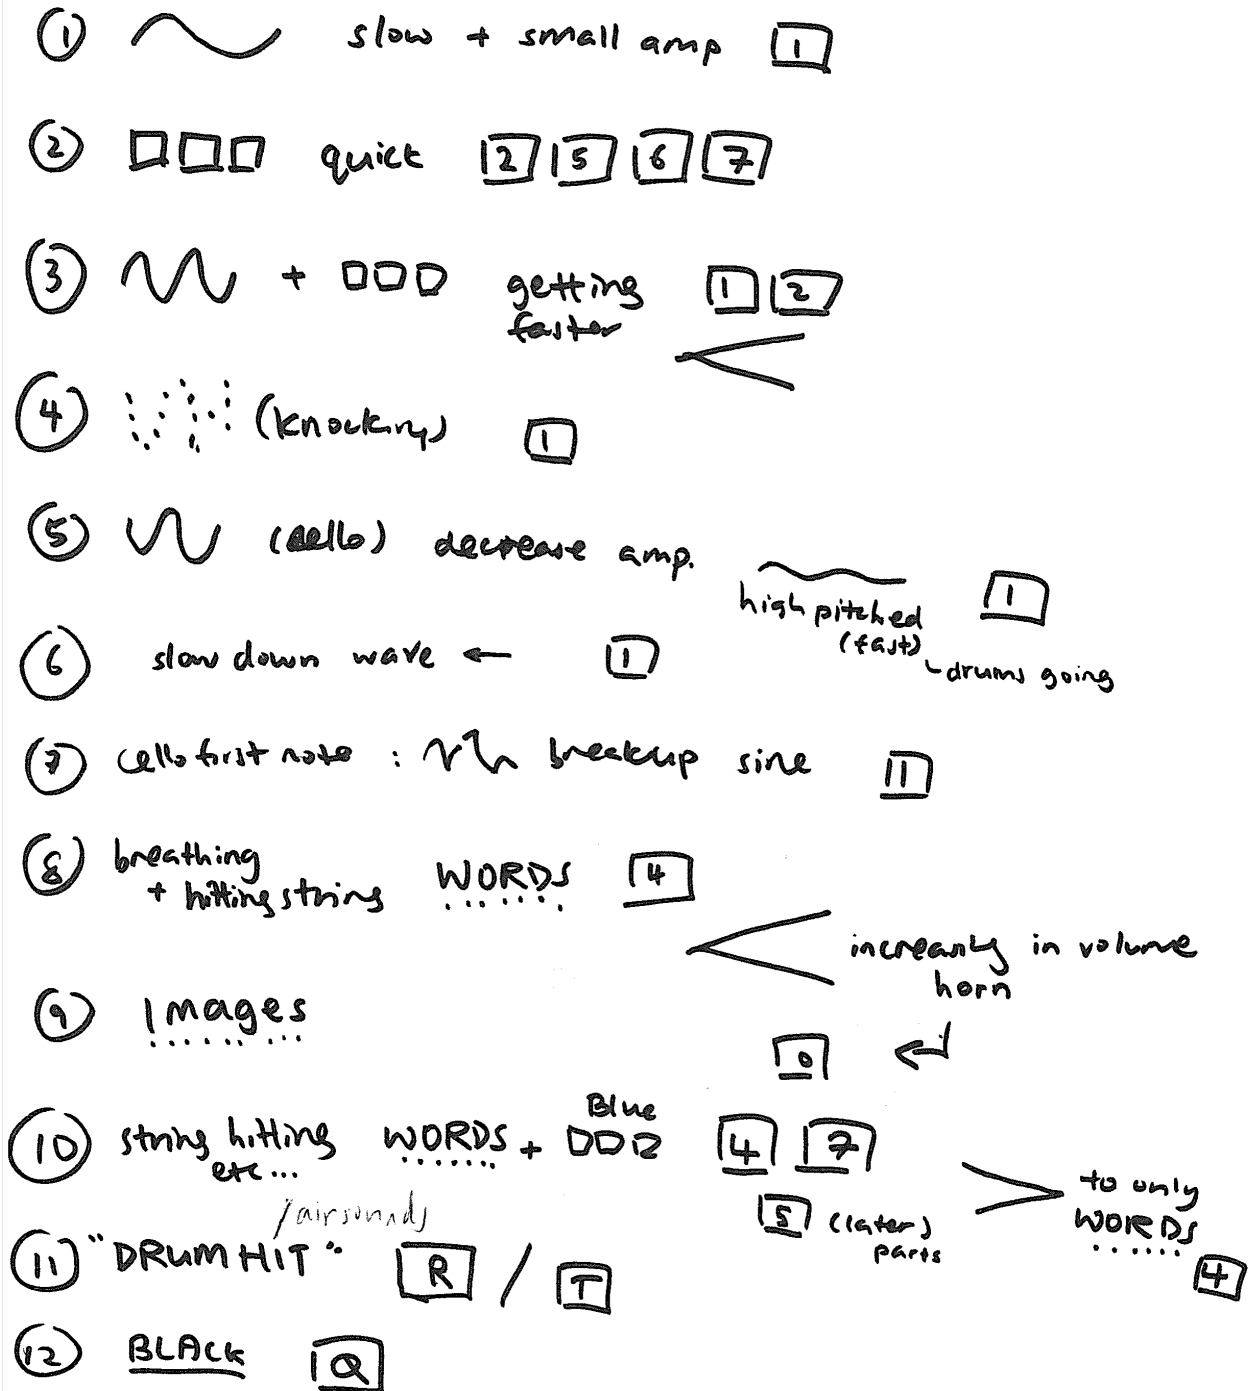 1 slow + small amp 1
2 quick 2 5 6 7
3 + getting 1 2
faster
4 (knocking) 1
5 (cello) decrease amp. 1
high pitched
(fast)
drums going
6 slow down wave ← 1
7 cello first note : breakup sine 11
8 breathing
+ hitting string WORDS 4
increasing in volume
horn
9 Images
0
10 string hitting WORDS + Blue 4 7
etc...
5 (later)
parts
to only
WORDS
4
/airsounds
11 "DRUM HIT" R / T
12 BLACK Q